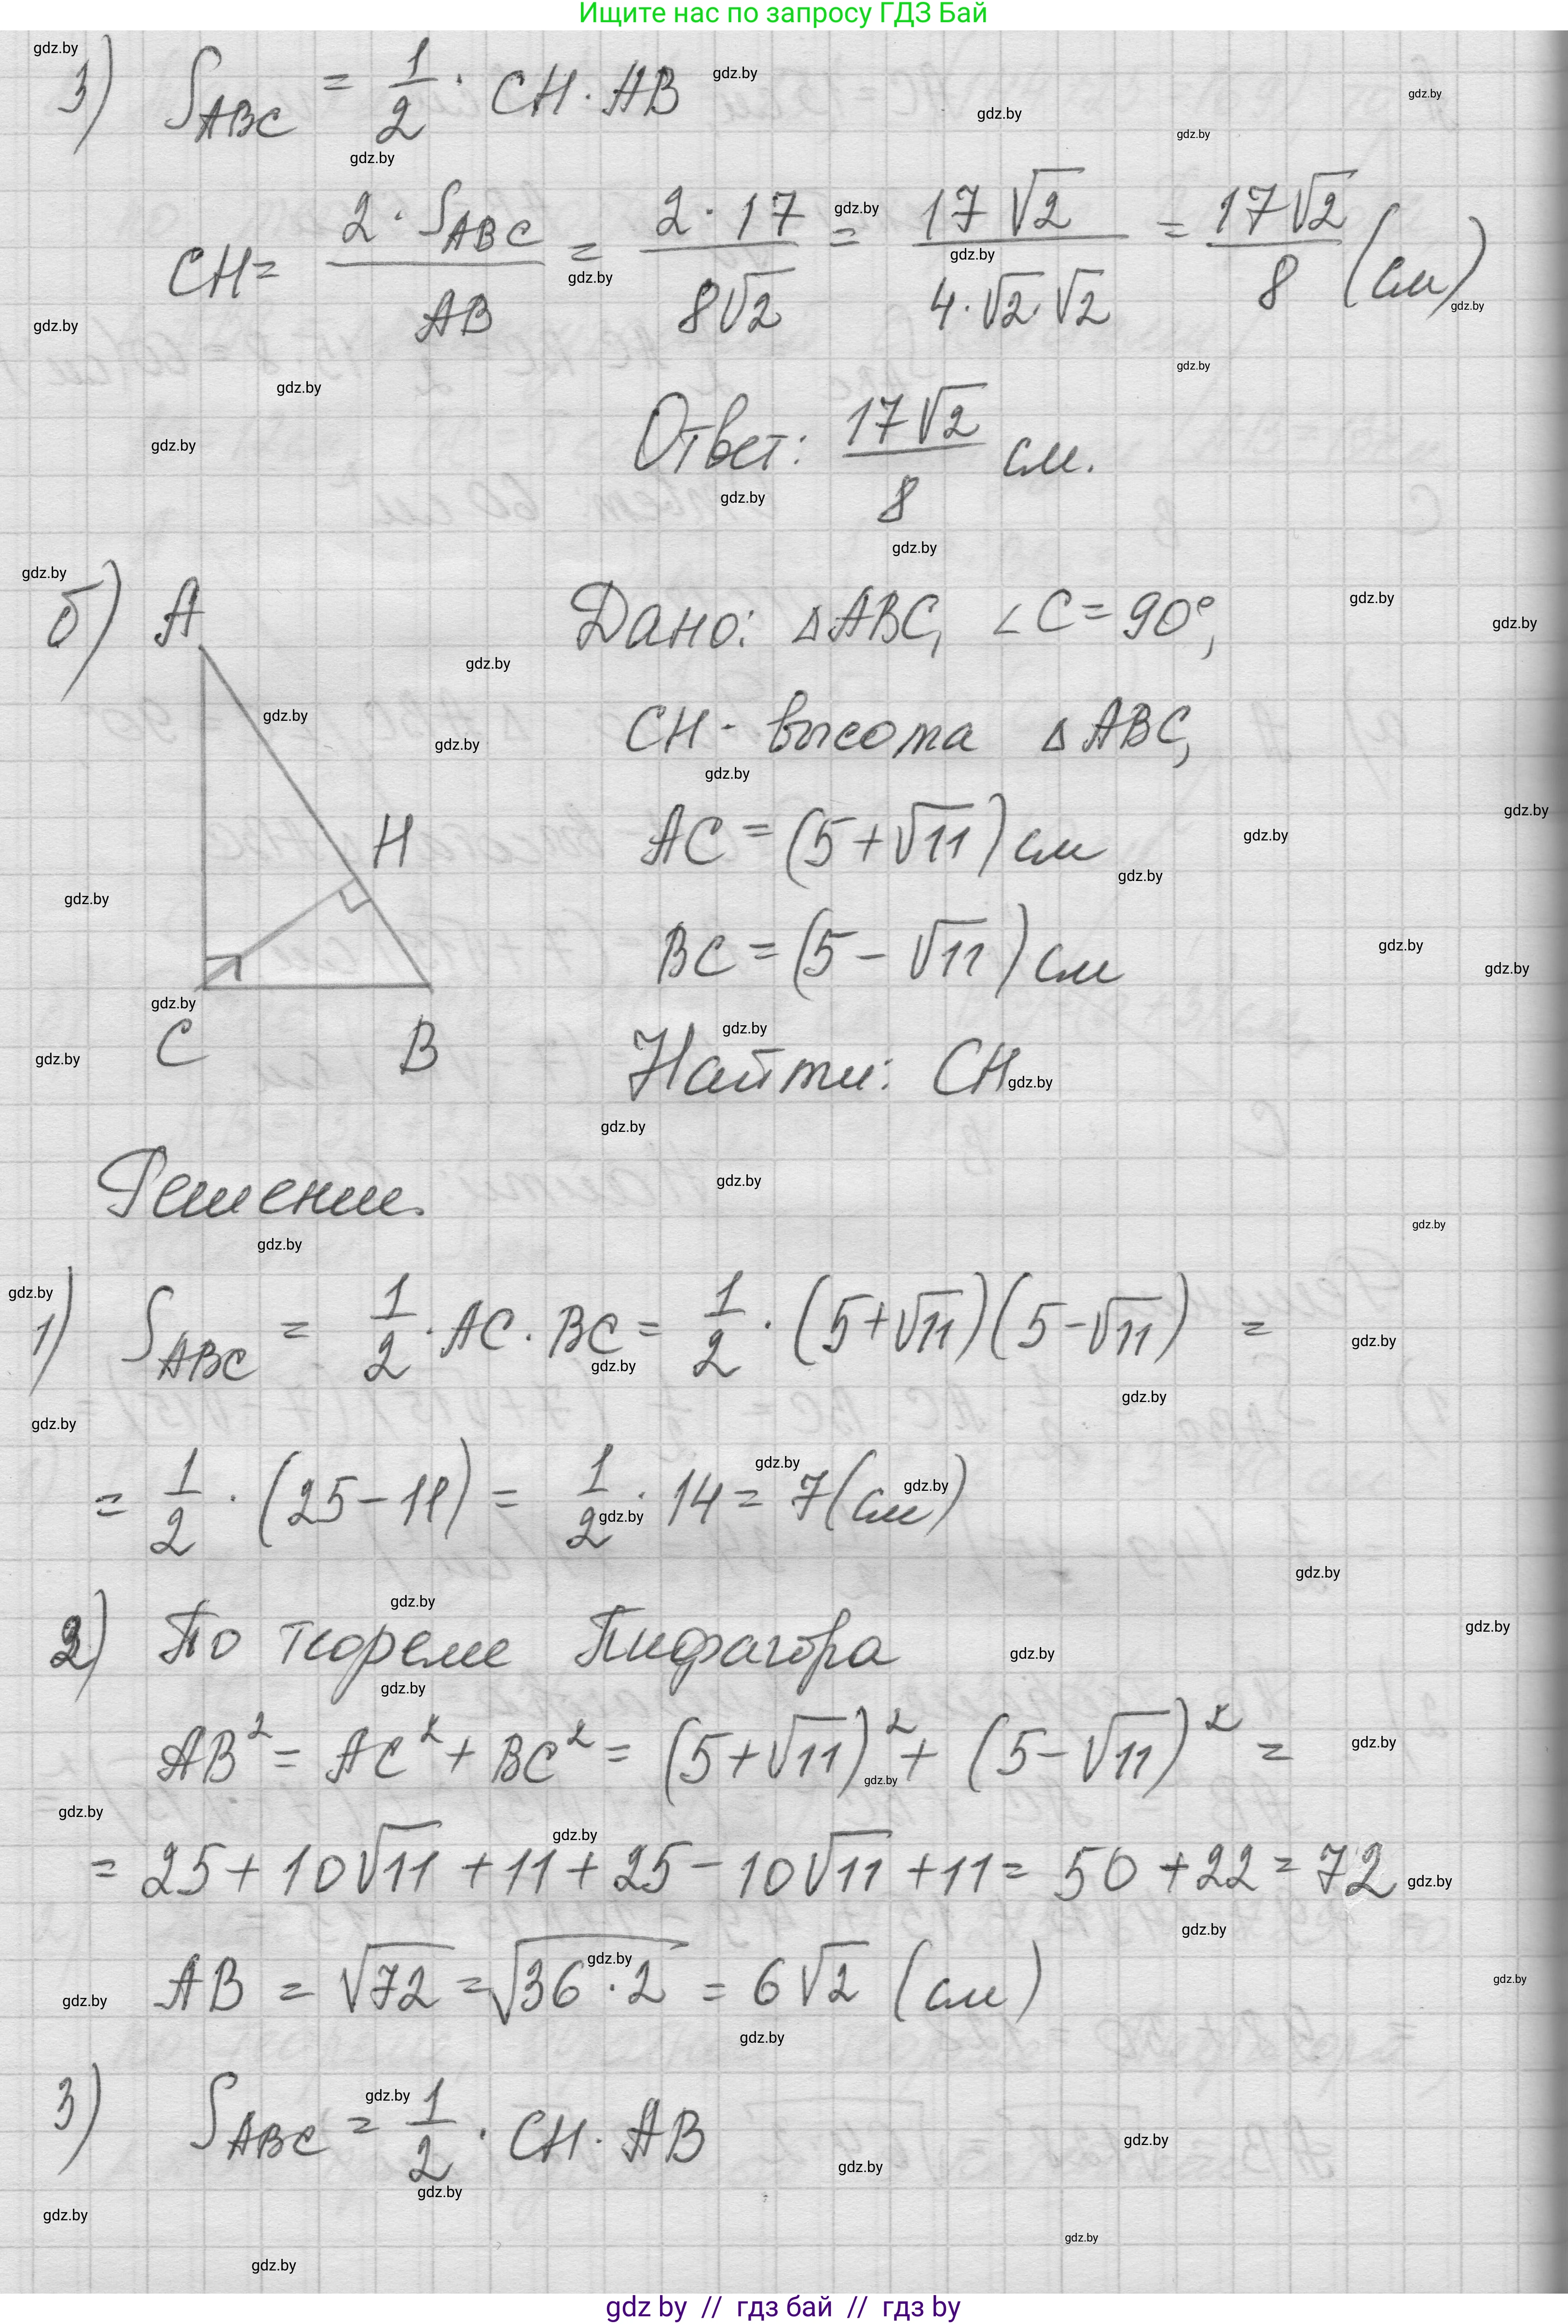 Ищите нас по запросу ГДЗ Бай
3) S_ABC = 1/2 · CH · AB
CH = 2 · S_ABC / AB = 2 · 17 / 8√2 = 17√2 / 4 · √2 · √2 = 17√2 / 8 (см)
Ответ: 17√2 / 8 см.
б) A
Дано: △ABC, ∠C = 90°,
CH - высота △ABC,
H
AC = (5 + √11) см
BC = (5 - √11) см
C B
Найти: CH
Решение.
1) S_ABC = 1/2 · AC · BC = 1/2 · (5+√11)(5-√11) =
= 1/2 · (25 - 11) = 1/2 · 14 = 7 (см)
2) По теореме Пифагора
AB² = AC² + BC² = (5+√11)² + (5-√11)² =
= 25 + 10√11 + 11 + 25 - 10√11 + 11 = 50 + 22 = 72
AB = √72 = √36 · 2 = 6√2 (см)
3) S_ABC = 1/2 · CH · AB
gdz by // гдз бай // гдз by